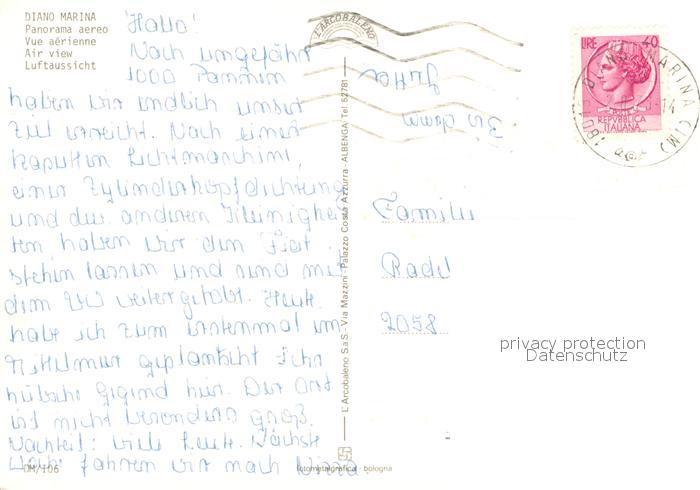 DIANO MARINA
Panorama aereo
Vue aérienne
Air view
Luftaussicht
Hallo!
Nach ungefähr
1000 Pannen
haben wir endlich unser
Ziel erreicht. Nach einer
kaputten Lichtmaschine,
einer Zylinderkopfdichtung
und div. anderen Kleinigkei-
ten haben wir den Fiat
stehen lassen und sind mit
dem VW weitergetobt. Heute
habe ich zum erstenmal im
Mittelmeer geplantscht. Sehr
hübsche Gegend hier. Der Ort
ist nicht besonders groß.
Nachteil: viele Leute. Nächste
Woche fahren wir nach Nizza.
DM/106
L'ARCOBALENO
L'Arcobaleno S.a.S. - Via Mazzini - Palazzo Costa Azzurra - ALBENGA Tel. 52781
fotometalgrafica - bologna
Bis dann
LIRE 40
REPVBBLICA
ITALIANA
DIANO MARINA (IM)
Familie
Radel
2058
privacy protection
Datenschutz